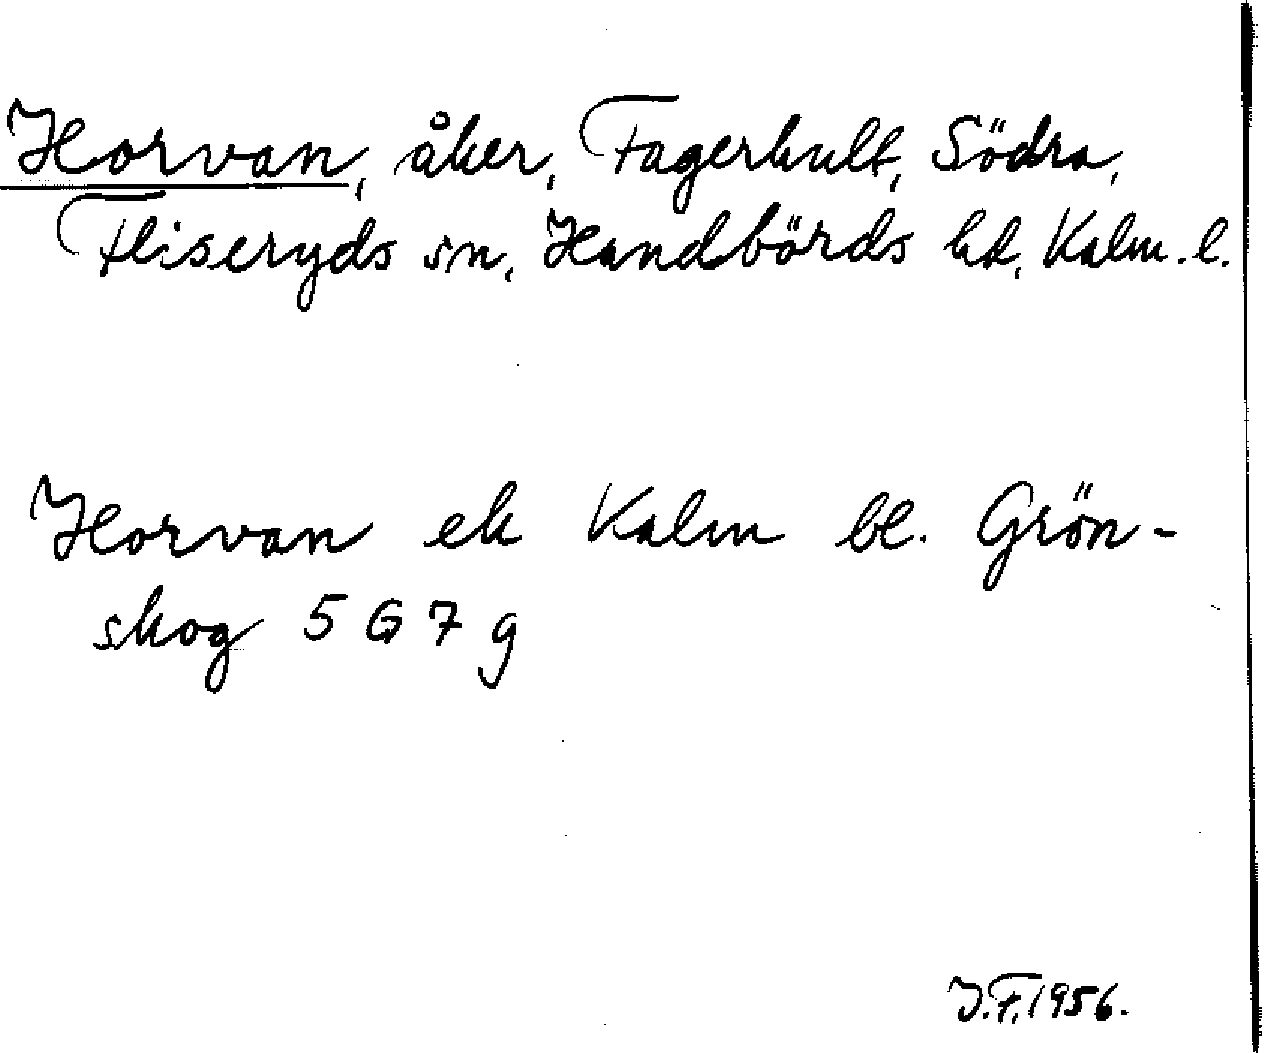 Horvan, åker, Fagerhult, Södra,
Fliseryds sn, Handbörds hd, Kalm. l.
Horvan ek Kalm bl. Grön-
skog 5 G 7 g
J.F. 1956.